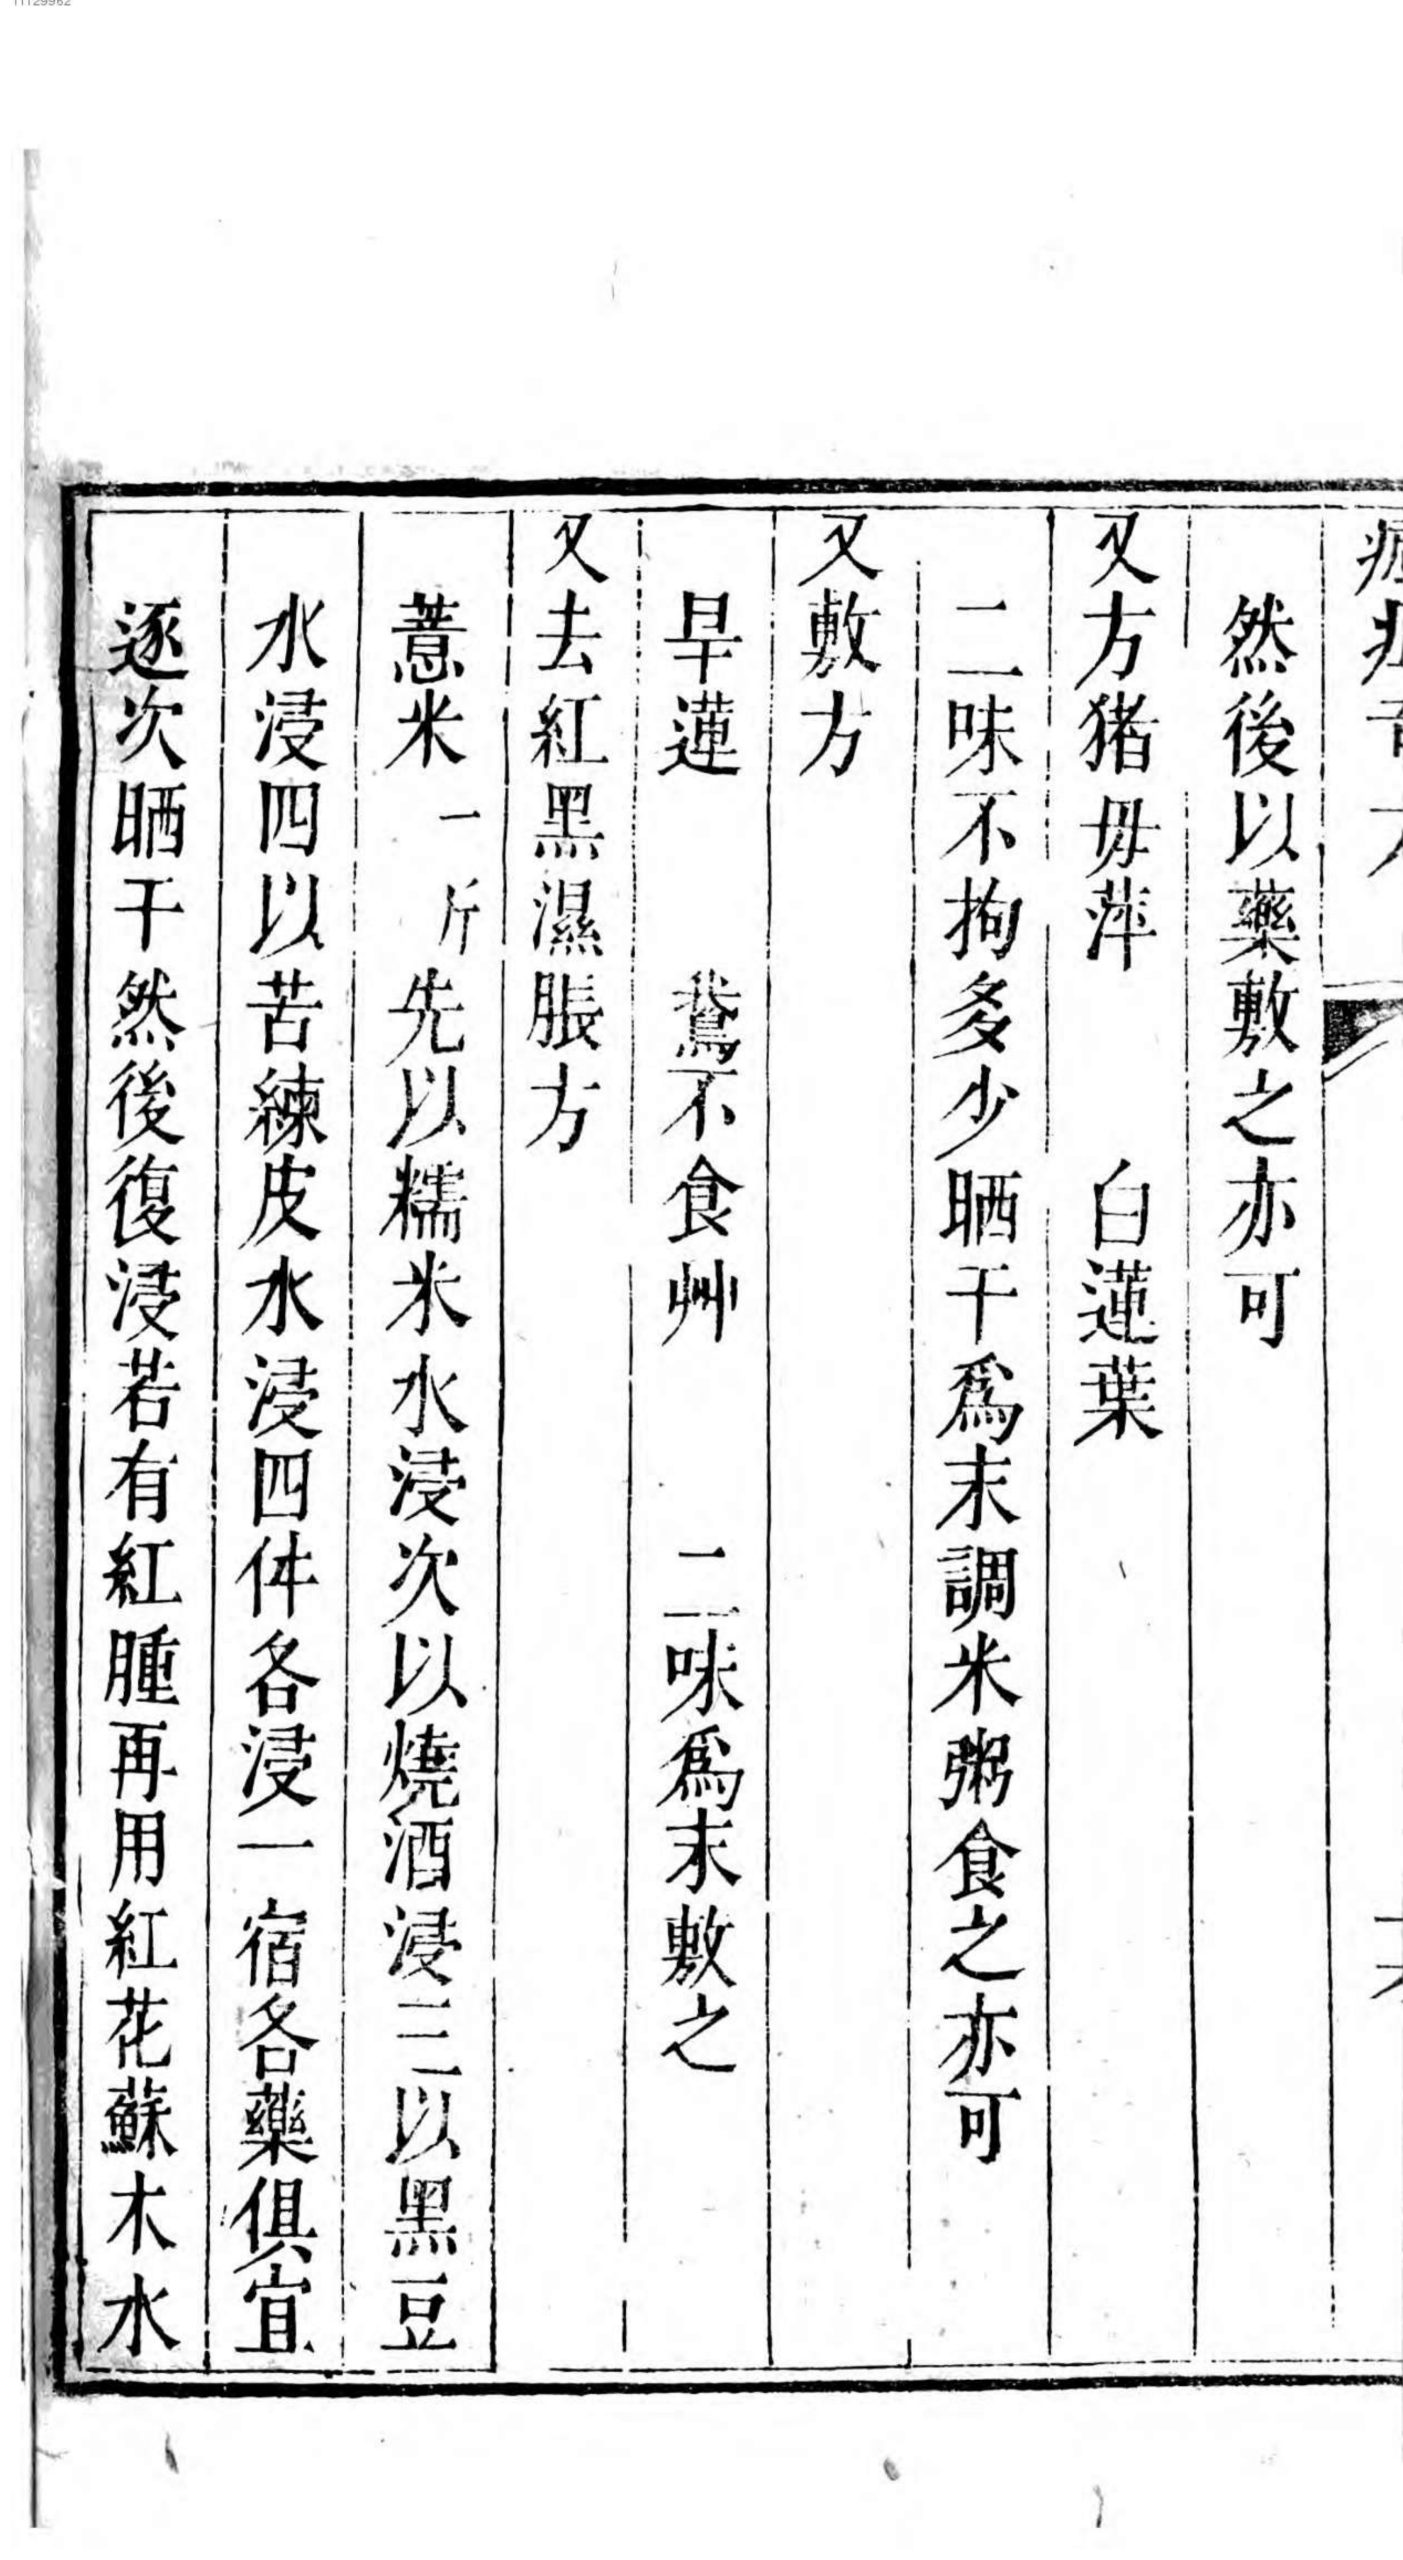 然後以藥敷之亦可
又方猪毋萍 白蓮葉
二味不拘多少晒干爲末調米粥食之亦可
又敷方
旱蓮 鵞不食艸 二味爲末敷之
又去紅黑濕脹方
薏米一斤先以糯米水浸次以燒酒浸三以黑豆
水浸四以苦練皮水浸四件各浸一宿各藥俱宜
逐次晒干然後復浸若有紅腫再用紅花蘇木水